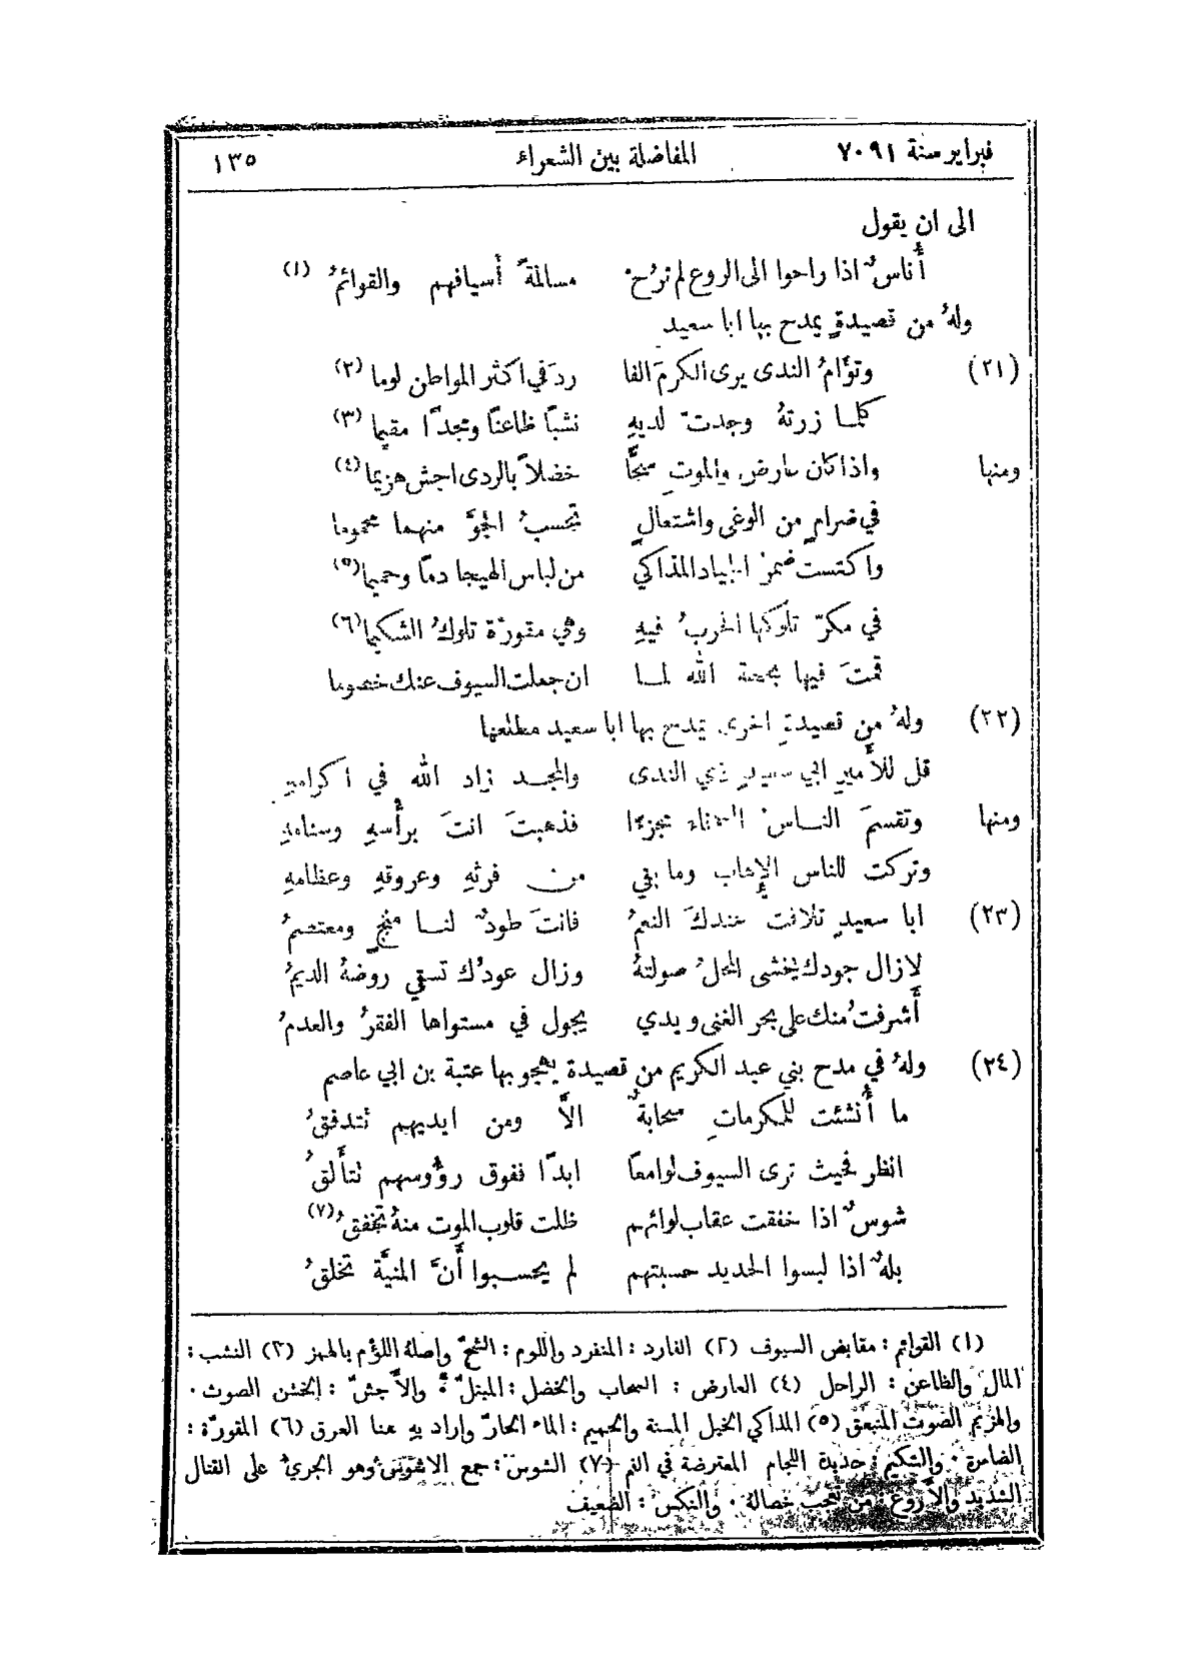 فبراير سنة ٧٠٩١ المفاضلة بين الشعراء ١٣٥
الى ان يقول
أُناسٌ اذا راحوا الى الروع لم تَرُحْ مسالمةً أسيافهم والقوائمُ (١)
ولهُ من قصيدةٍ يمدح بها ابا سعيد
(٢١) وتؤَامُ الندى يرى الكرمَ الفا ردَ في اكثر المواطن لوما (٢)
كلما زرتهُ وجدتَ لديهِ نشبًا ظاعنًا ومجدًا مقيما (٣)
ومنها واذا كان عارض والموتِ سحًّا خضلاً بالردى اجش هزيما (٤)
في ضرامٍ من الوغى واشتعالٍ تحسبُ الجوَّ منهما محموما
واكتست ضمرُ الجياد المذاكي من لباس الهيجا دمًا وحميما (٥)
في مكرّ تلوكها الحربُ فيهِ وهي مقورّة تلوكُ الشكيما (٦)
قمتَ فيها بحجة الله لما ان جعلت السيوف عنك خصوما
(٢٢) ولهُ من قصيدةٍ اخرى يمدح بها ابا سعيد مطلعها
قل للأميرِ ابي سعيدٍ ذي الندى والمجد زاد الله في اكرامهِ
ومنها وتقسمَ الناسُ السخاء تجزءًا فذهبتَ انتَ برأسهِ وسنامهِ
وتركت للناس الإِهاب وما بقي من فرثهِ وعروقهِ وعظامهِ
(٢٣) ابا سعيدٍ تلاقت عندكَ النعمُ فانتَ طودٌ لنا منجٍ ومعتصمُ
لازال جودك يخشى المحلُ صولتهُ وزال عودُك تسقي روضهُ الديمُ
أَشرفتُ منك على بحر الغنى ويدي يجول في مستواها الفقرُ والعدمُ
(٢٤) ولهُ في مدح بني عبد الكريم من قصيدة يهجو بها عتبة بن ابي عاصم
ما أُنشئت للمكرماتِ سحابةٌ الاَّ ومن ايديهم تتدفقُ
انظر فحيث ترى السيوف لوامعًا ابدًا ففوق رؤُوسهم تتأَلقُ
شوسٌ اذا خفقت عقاب لوائهم ظلت قلوب الموت منهُ تخفقُ (٧)
بلهٌ اذا لبسوا الحديد حسبتهم لم يحسبوا أَنَّ المنيَّة تخلقُ
(١) القوائم : مقابض السيوف (٢) الفارد : المنفرد واللوم : الشحّ واصلهُ اللؤم بالهمز (٣) النشب :
المال والظاعن : الراحل (٤) العارض : السحاب والخضل : المبتلّ والأجشّ : الخشن الصوت ·
والهزيم الصوت المنبعق (٥) المذاكي الخيل المسنة والحميم : الماء الحارّ واراد بهِ هنا العرق (٦) المقورّة :
الضامرة · والشكيم : حديدة اللجام المعترضة في الفم (٧) الشوس : جمع الاشوس وهو الجريءُ على القتال
الشديد والأروع : من تعجب خصاله · والنكس : الضعيف